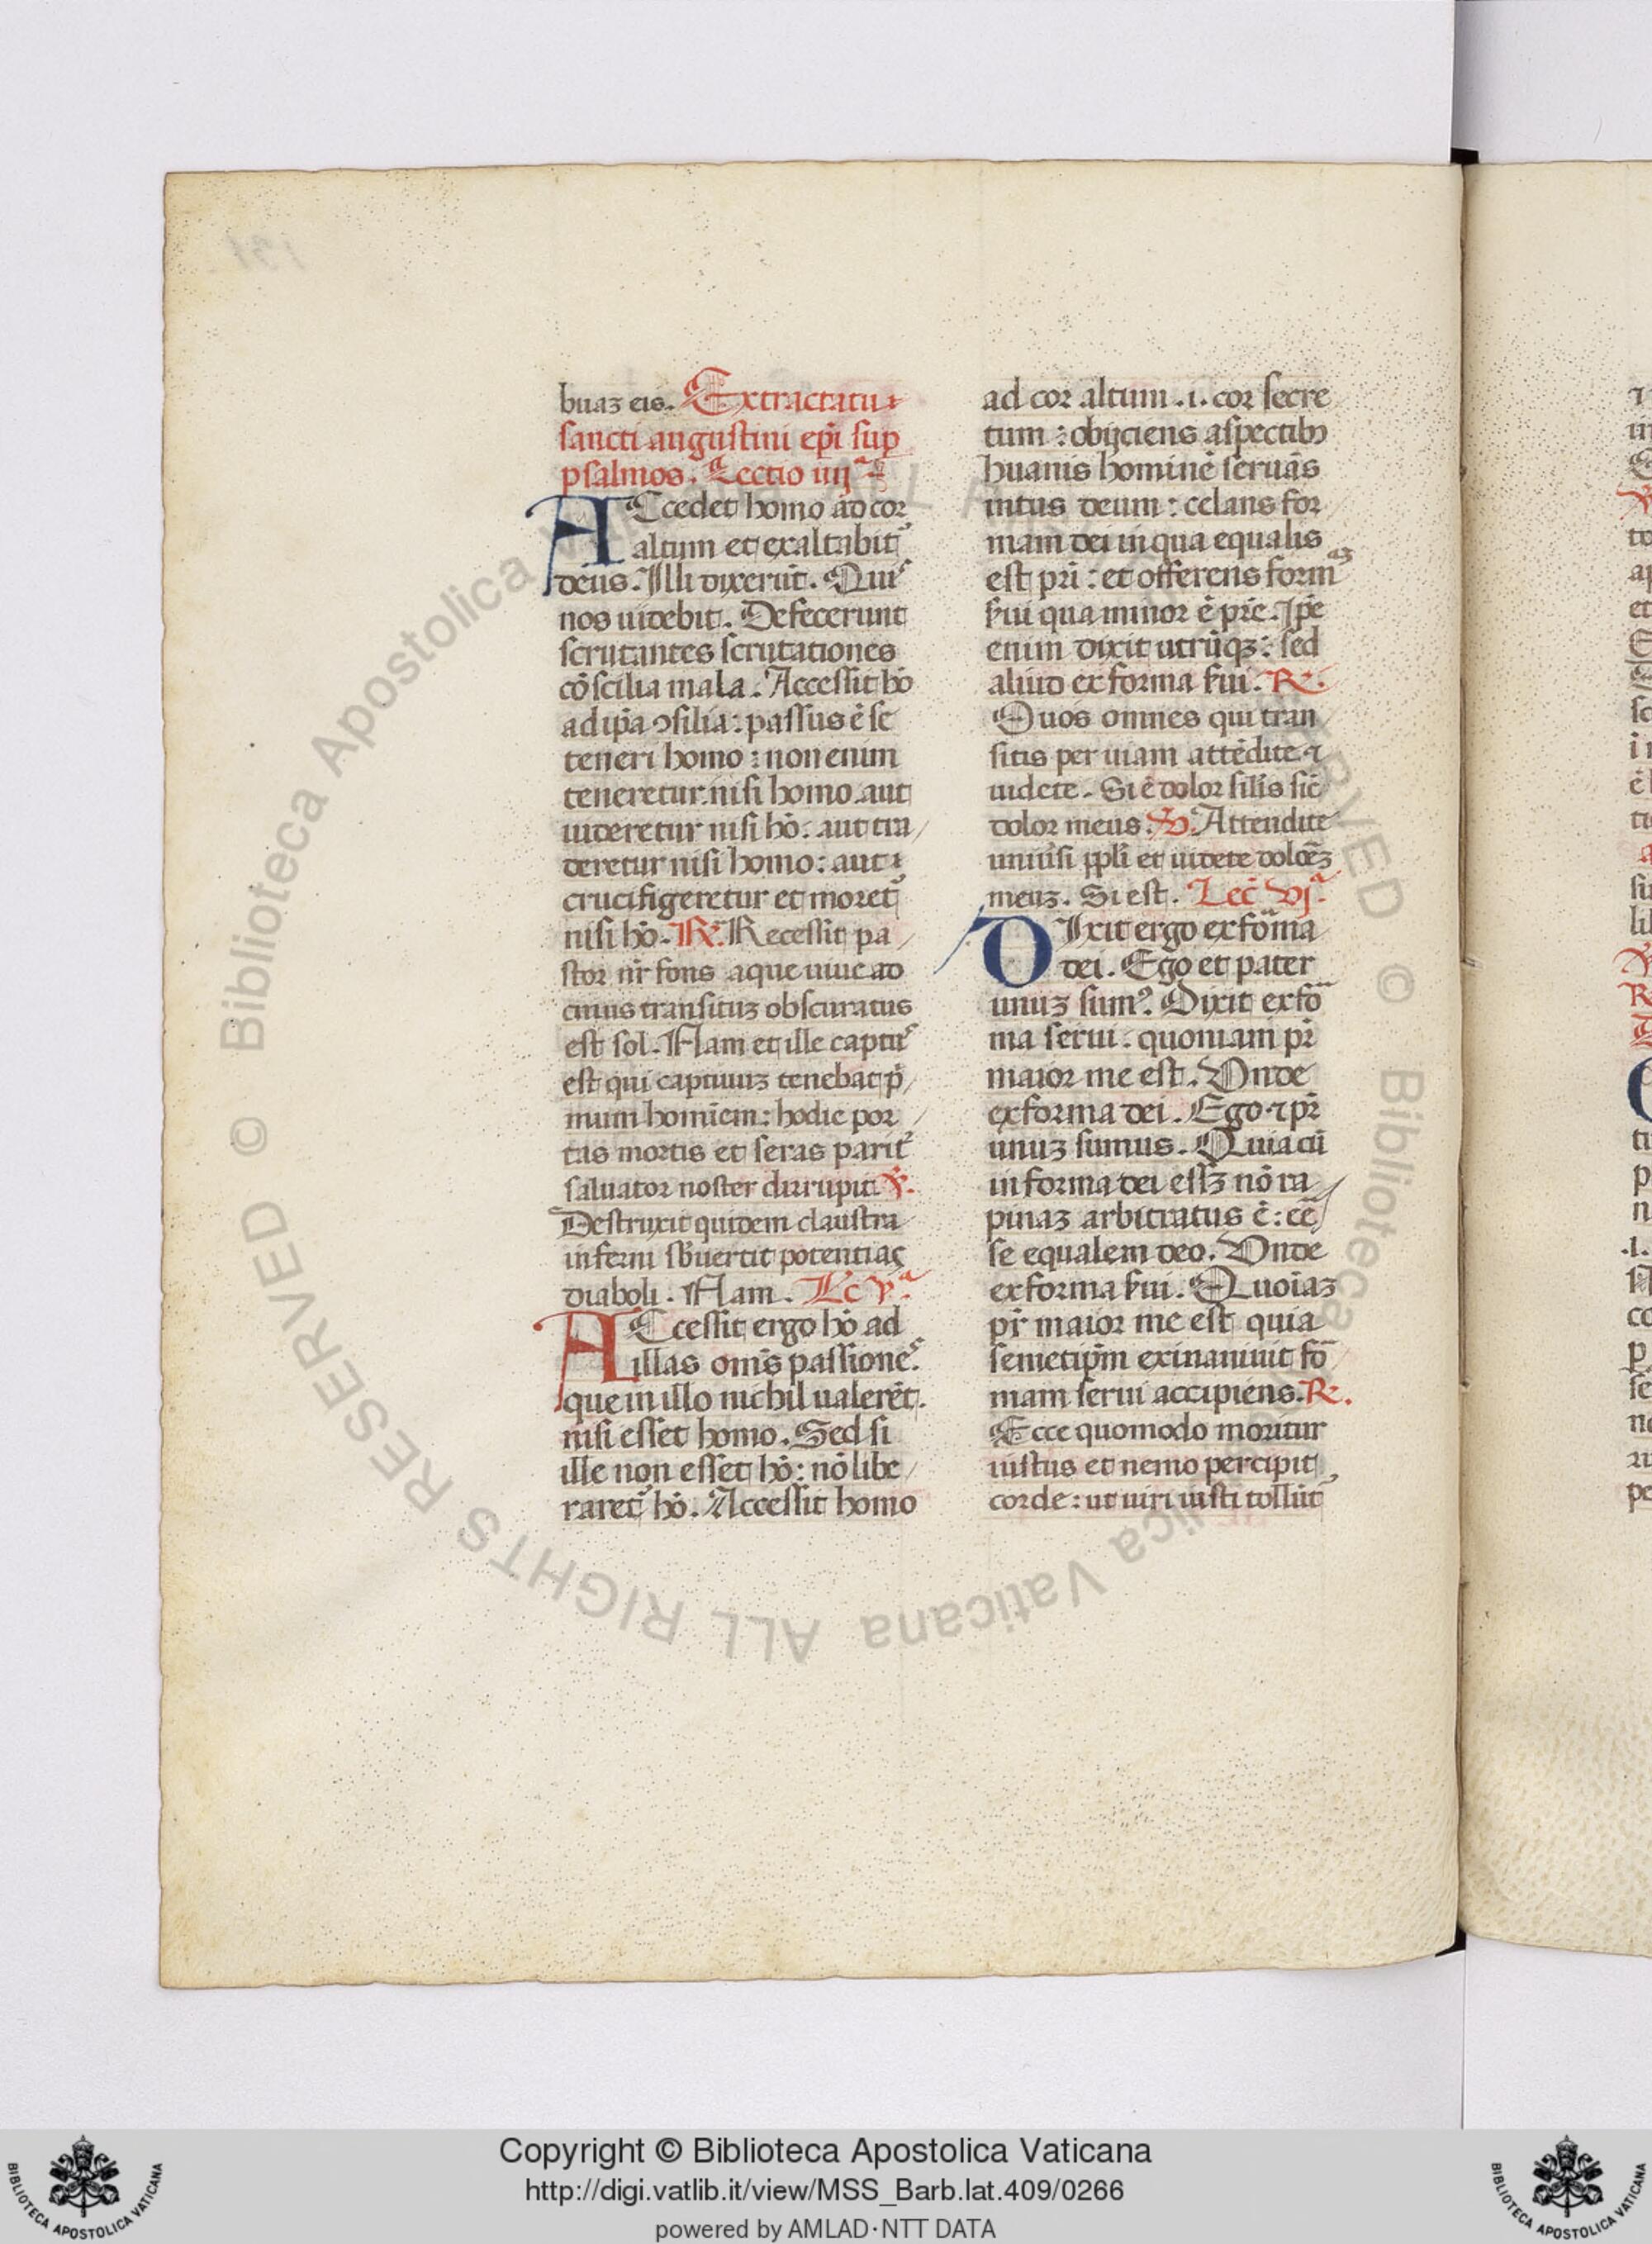 buaꝫ eis. Extractatu
sancti augustini ep̄i sup
psalmos. Lectio iiijª
ACcedet homo ad cor
altum et exaltabit᷒
deus. Illi dixerūt. Quis
nos uidebit. Defecerunt
scrutantes scrutationes
cōscilia mala. Accessit hō
ad ip̄a ꝯsilia: passus ē se
teneri homo: non enim
teneretur nisi homo. aut
uideretur nisi hō. aut tra
deretur nisi homo: aut
crucifigeretur et moret᷒
nisi hō. R. Recessit pa
stor nr̄ fons aque uiue ad
cuius transituꝫ obscuratus
est sol. Nam et ille captus
est qui captiuuꝫ tenebat p̄
mum homīem: hodie por
tas mortis et seras parit᷒
saluator noster dirrupit. V.
Destruxit quidem claustra
inferni sb̄uertit potentias
diaboli. Nam. Lc vª.
ACcessit ergo hō ad
illas om̄s passiones.
que in illo nichil ualerēt.
nisi esset homo. Sed si
ille non esset hō: nō libe
raret᷒ hō. Accessit homo
ad cor altum .i. cor secre
tum: obijciens aspectibꝫ
huanis hominē seruās
intus deum: celans for
mam dei in qua equalis
est pr̄i: et offerens formaꝫ
s̄ui qua minor ē pr̄e. Ip̄e
enim dixit utrūqꝫ: sed
aliud ex forma s̄ui. R.
O uos omnes qui tran
sitis per uiam attēdite ⁊
uidete. Si ē dolor silis sic̄
dolor meus. V. Attendite
uniūsi pp̄li et uidete dolōeꝫ
meuꝫ. Si est. Lec̄ vjª.
DIxit ergo ex fōma
dei. Ego et pater
unuꝫ sum᷒. Dixit ex fō
ma serui. quoniam pr̄
maior me est. Unde
ex forma dei. Ego ⁊ pr̄
unuꝫ sumus. Quia cū
in forma dei essꝫ nō ra
pinaꝫ arbitratus ē: eē
se equalem deo. Unde
ex forma s̄ui. Quōiaꝫ
pr̄ maior me est quia
semetip̄m exinaniuit fō
mam serui accipiens. R.
Ecce quomodo moritur
iustus et nemo percipit
corde: ut uiri iusti tollūt᷒
Copyright © Biblioteca Apostolica Vaticana
http://digi.vatlib.it/view/MSS_Barb.lat.409/0266
powered by AMLAD·NTT DATA
BIBLIOTECA APOSTOLICA VATICANA
BIBLIOTECA APOSTOLICA VATICANA
© Biblioteca Apostolica Vaticana ALL RIGHTS RESERVED
© Biblioteca Apostolica Vaticana ALL RIGHTS RESERVED